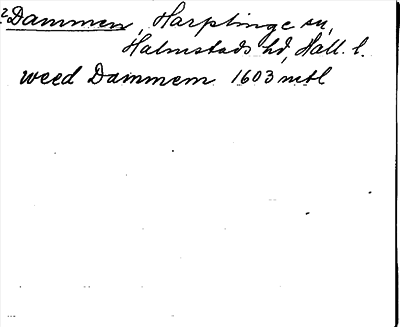 ?Dammen, Harplinge sn,
Halmstads hd, Hall. l.
weed Dammem 1603 mtl